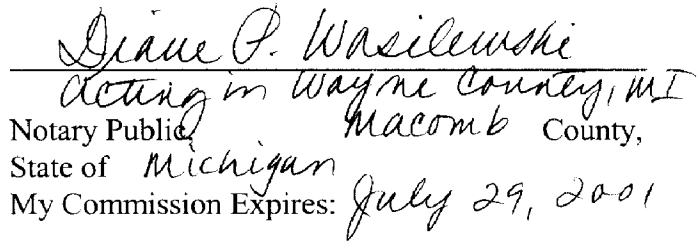 Diane P. Wasilewski
acting in Wayne County, MI
Notary Public, Macomb County,
State of Michigan
My Commission Expires: July 29, 2001